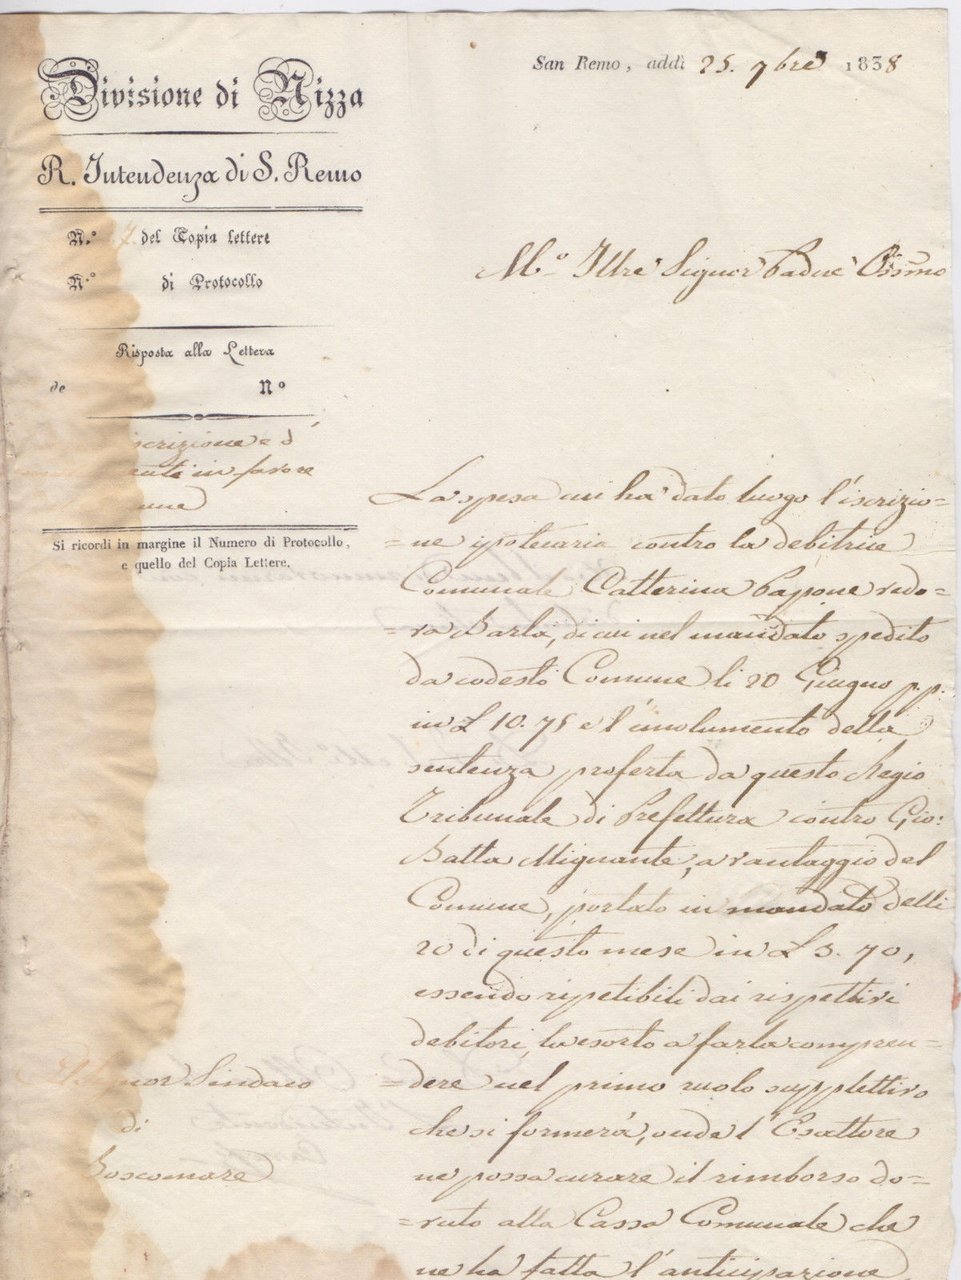 Divisione di Nizza
R. Intendenza di S. Remo
N.º 7. del Copia lettere
N.º di Protocollo
Risposta alla Lettera
de Nº
scrizione e d'
enti in favore
une
Si ricordi in margine il Numero di Protocollo,
e quello del Copia Lettere.
San Remo, addì 25. 9bre 1838
M.º Illre Signor Padne Ossmo
La spesa cui ha dato luogo l'iscrizio=
=ne ipotecaria contro la debitrice
Comunale Catterina Papone vedo=
=va Barla, di cui nel mandato spedito
da codesto Comune li 20 Giugno p.p.
in £ 10. 75 e l'emolumento della
sentenza proferta da questo Regio
Tribunale di Prefettura contro Gio:
Batta Mignante, a vantaggio del
Comune, portato in mandato delli
20 di questo mese in £ 3. 70,
essendo ripetibili dai rispettivi
debitori, la esorto a farla compren=
=dere nel primo ruolo suppletivo
che si formerà, onde l'Esattore
ne possa curare il rimborso do=
=vuto alla Cassa Comunale che
ne ha fatta l'anticipazione
Al Signor Sindaco
di
Boscomare